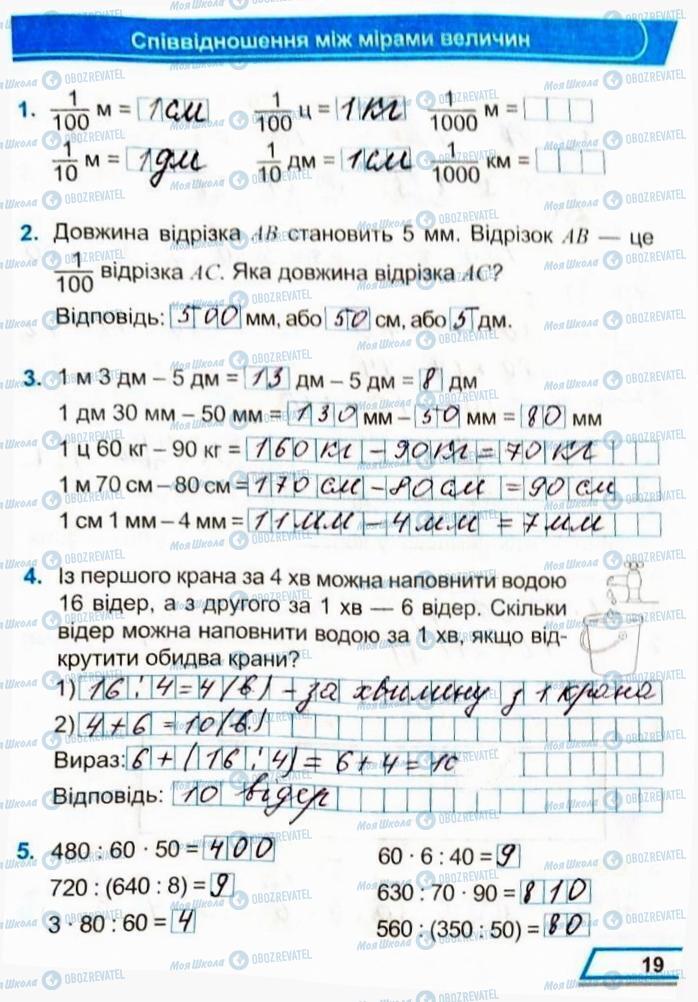 Співвідношення між мірами величин
1. 1/100 м = 1 см 1/100 ц = 1 кг 1/1000 м =
1/10 м = 1 дм 1/10 дм = 1 см 1/1000 км =
2. Довжина відрізка AB становить 5 мм. Відрізок AB — це
1/100 відрізка AC. Яка довжина відрізка AC?
Відповідь: 500 мм, або 50 см, або 5 дм.
3. 1 м 3 дм – 5 дм = 13 дм – 5 дм = 8 дм
1 дм 30 мм – 50 мм = 130 мм – 50 мм = 80 мм
1 ц 60 кг – 90 кг = 160 кг – 90 кг = 70 кг
1 м 70 см – 80 см = 170 см – 80 см = 90 см
1 см 1 мм – 4 мм = 11 мм – 4 мм = 7 мм
4. Із першого крана за 4 хв можна наповнити водою
16 відер, а з другого за 1 хв — 6 відер. Скільки
відер можна наповнити водою за 1 хв, якщо від-
крутити обидва крани?
1) 16 : 4 = 4 (в) – за хвилину з 1 крана
2) 4 + 6 = 10 (в.)
Вираз: 6 + (16 : 4) = 6 + 4 = 10
Відповідь: 10 відер
5. 480 : 60 · 50 = 400 60 · 6 : 40 = 9
720 : (640 : 8) = 9 630 : 70 · 90 = 810
3 · 80 : 60 = 4 560 : (350 : 50) = 80
19
Моя Школа OBOZREVATEL